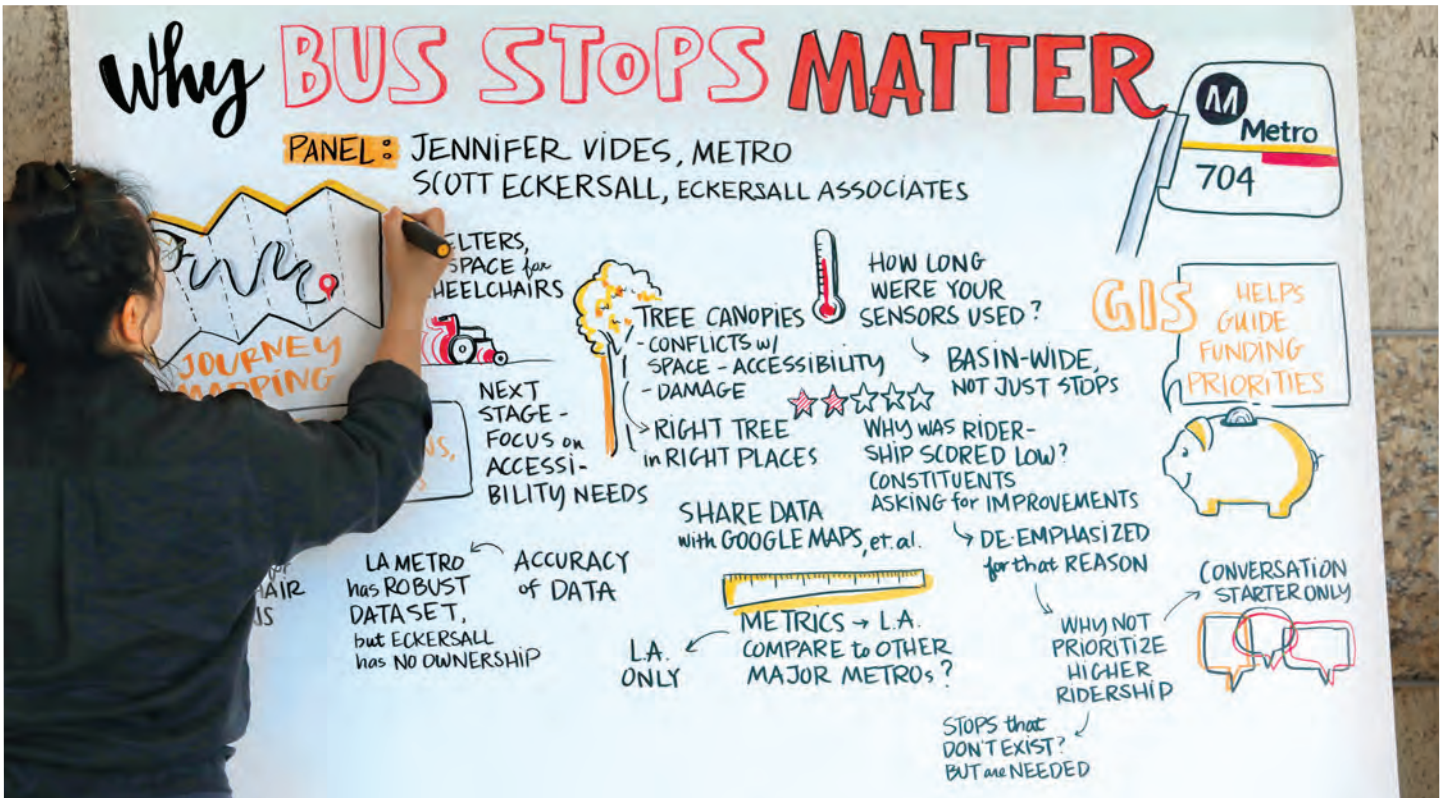 Why BUS STOPS MATTER
M
Metro
704
PANEL: JENNIFER VIDES, METRO
SCOTT ECKERSALL, ECKERSALL ASSOCIATES
JOURNEY
MAPPING
SPACE for
NEXT
STAGE -
FOCUS on
ACCESSI-
BILITY NEEDS
TREE CANOPIES
- CONFLICTS W/
SPACE - ACCESSIBILITY
- DAMAGE
RIGHT TREE
in RIGHT PLACES
HOW LONG
WERE YOUR
SENSORS USED?
BASIN-WIDE,
NOT JUST STOPS
GIS HELPS
GUIDE
FUNDING
PRIORITIES
WHY WAS RIDER-
SHIP SCORED LOW?
CONSTITUENTS
ASKING for IMPROVEMENTS
DE-EMPHASIZED
for that REASON
WHY NOT
PRIORITIZE
HIGHER
RIDERSHIP
CONVERSATION
STARTER ONLY
STOPS that
DON'T EXIST?
BUT are NEEDED
SHARE DATA
with GOOGLE MAPS, et. al.
METRICS → L.A.
COMPARE to OTHER
MAJOR METROs?
L.A.
ONLY
ACCURACY
of DATA
LA METRO
has ROBUST
DATASET,
but ECKERSALL
has NO OWNERSHIP